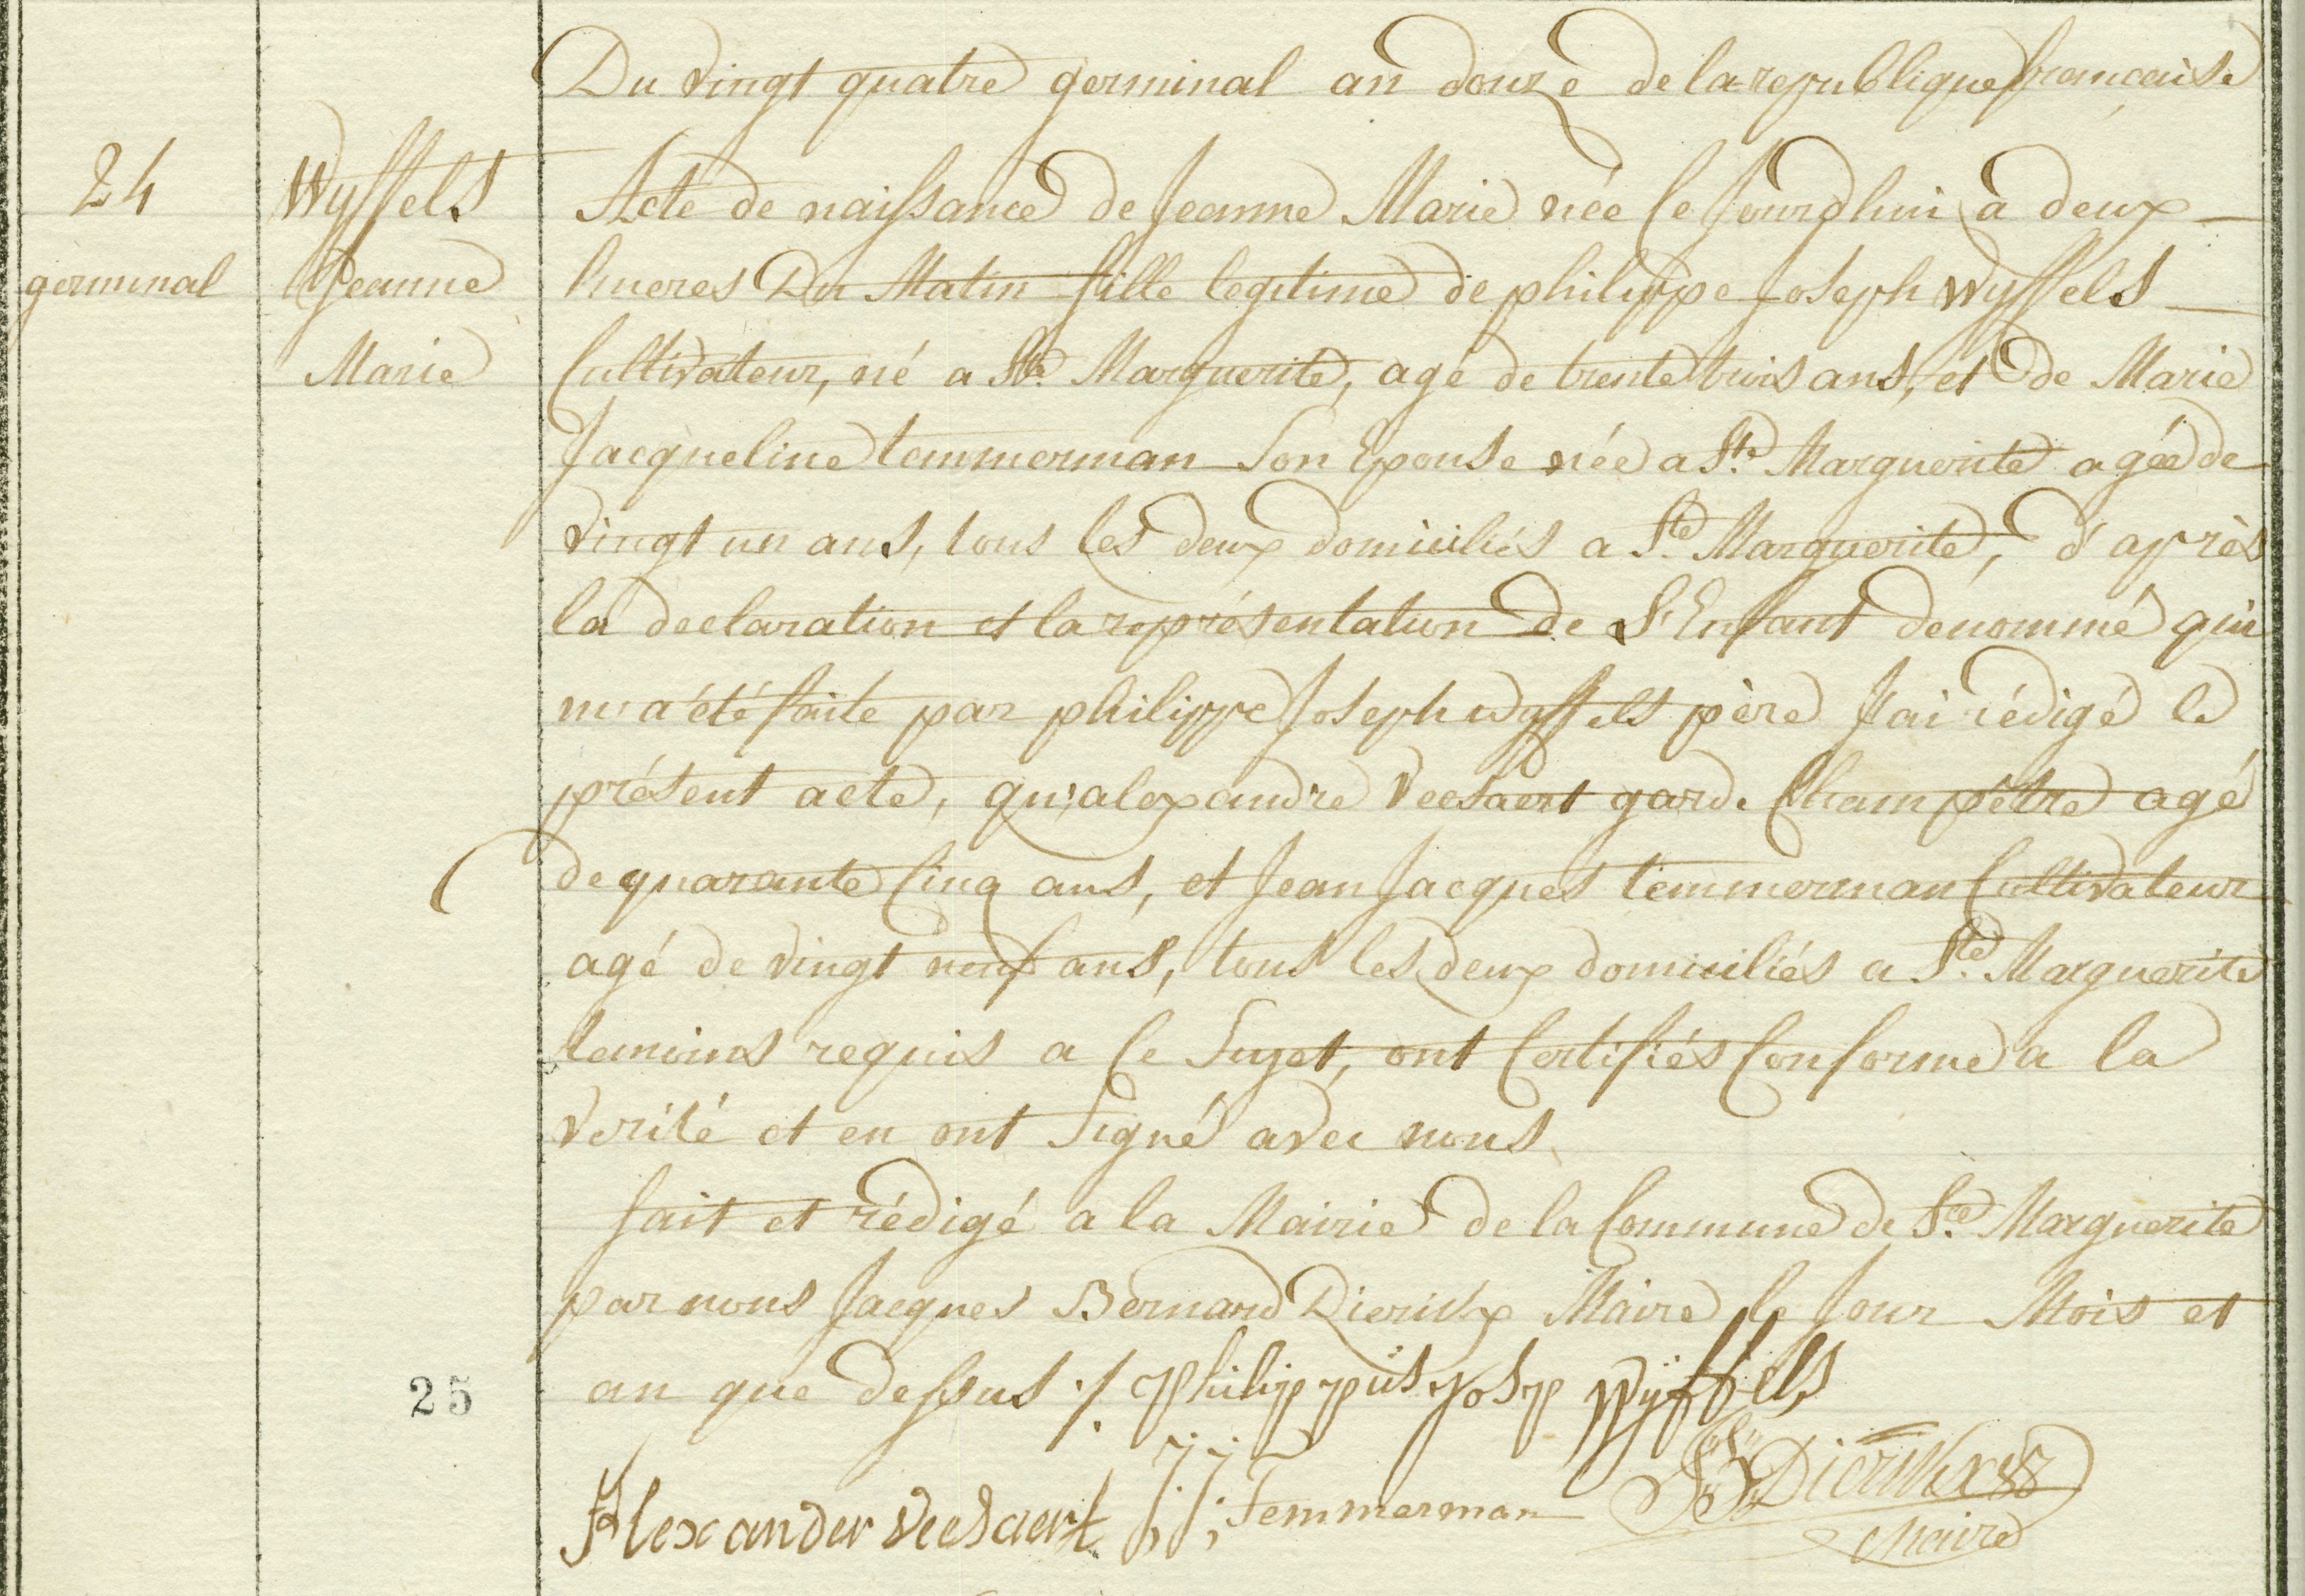 Du vingt quatre germinal an douze de la republique francaise
24
germinal
Wyffels
Jeanne
Marie
Acte de naissance de Jeanne Marie née ce Jourdhui a deux
hueres Du Matin fille legitime de philippe Joseph Wyffels
Cultivateur, né a Ste. Marguerite, agé de trente trois ans, et de Marie
Jacqueline temmerman Son Epouse née a Ste. Marguerite agée de
vingt un ans, tous les deux domiciliés a Ste. Marguerite, d'après
la declaration et la représentation de L'Enfant denommé qui
m'a été faite par philippe Joseph wyffels père J'ai rédigé le
présent acte, qu'alexandre Veesaert garde Champêtre agé
de quarante Cinq ans, et Jean Jacques temmerman Cultivateur
agé de vingt neuf ans, tous les deux domiciliés a Ste. Marguerite
temoins requis a Ce Sujet, ont Certifiés Conforme a la
verité et en ont Signé avec nous
fait et rédigé a la Mairie de la Commune de Ste. Marguerite
par nous Jacques Bernard Dierickx Maire le Jour Mois et
an que dessus ./. Philippus Josp Wÿffels
25
Alexander Veesaert J: J: Temmerman Dierickx
Maire